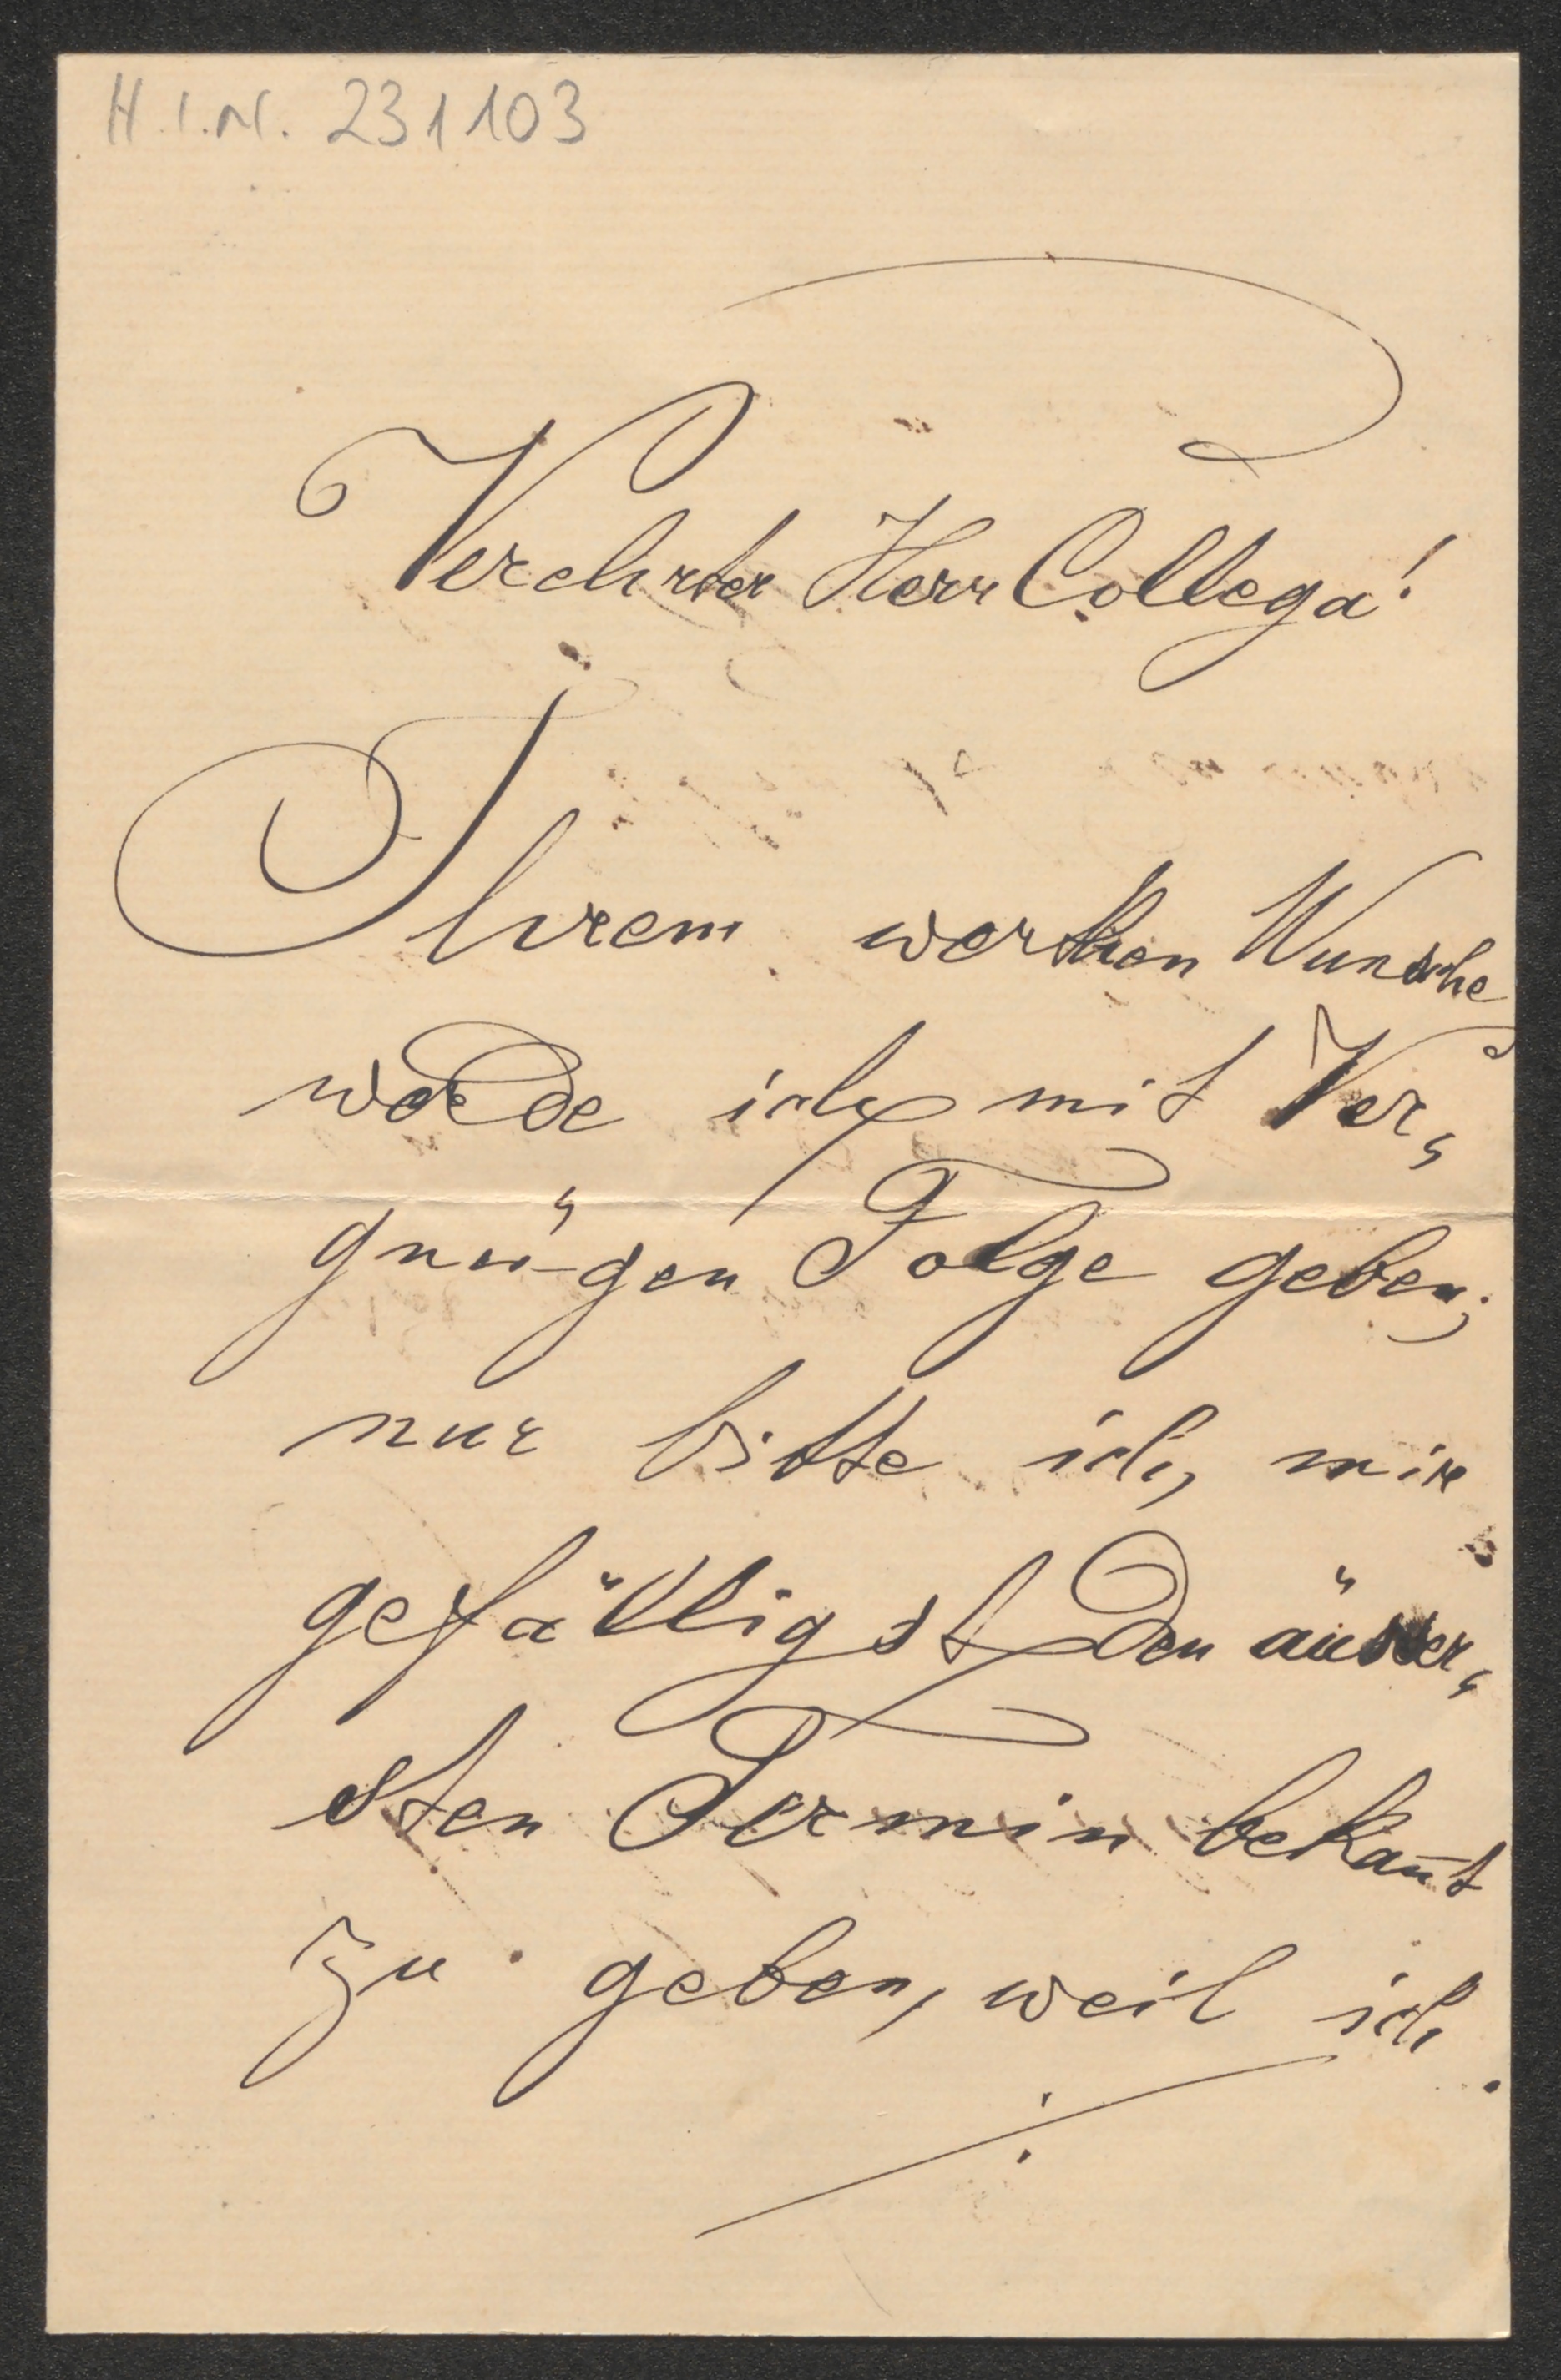 H.I.N. 231103
Verehrter Herr Collega!
Ihrem werthen Wunsche
werde ich mit Ver„
gnügen Folge geben;
nur bitte ich, mir
gefälligst den äusser„
sten Termin bekan̄t
zu geben, weil ich
./.